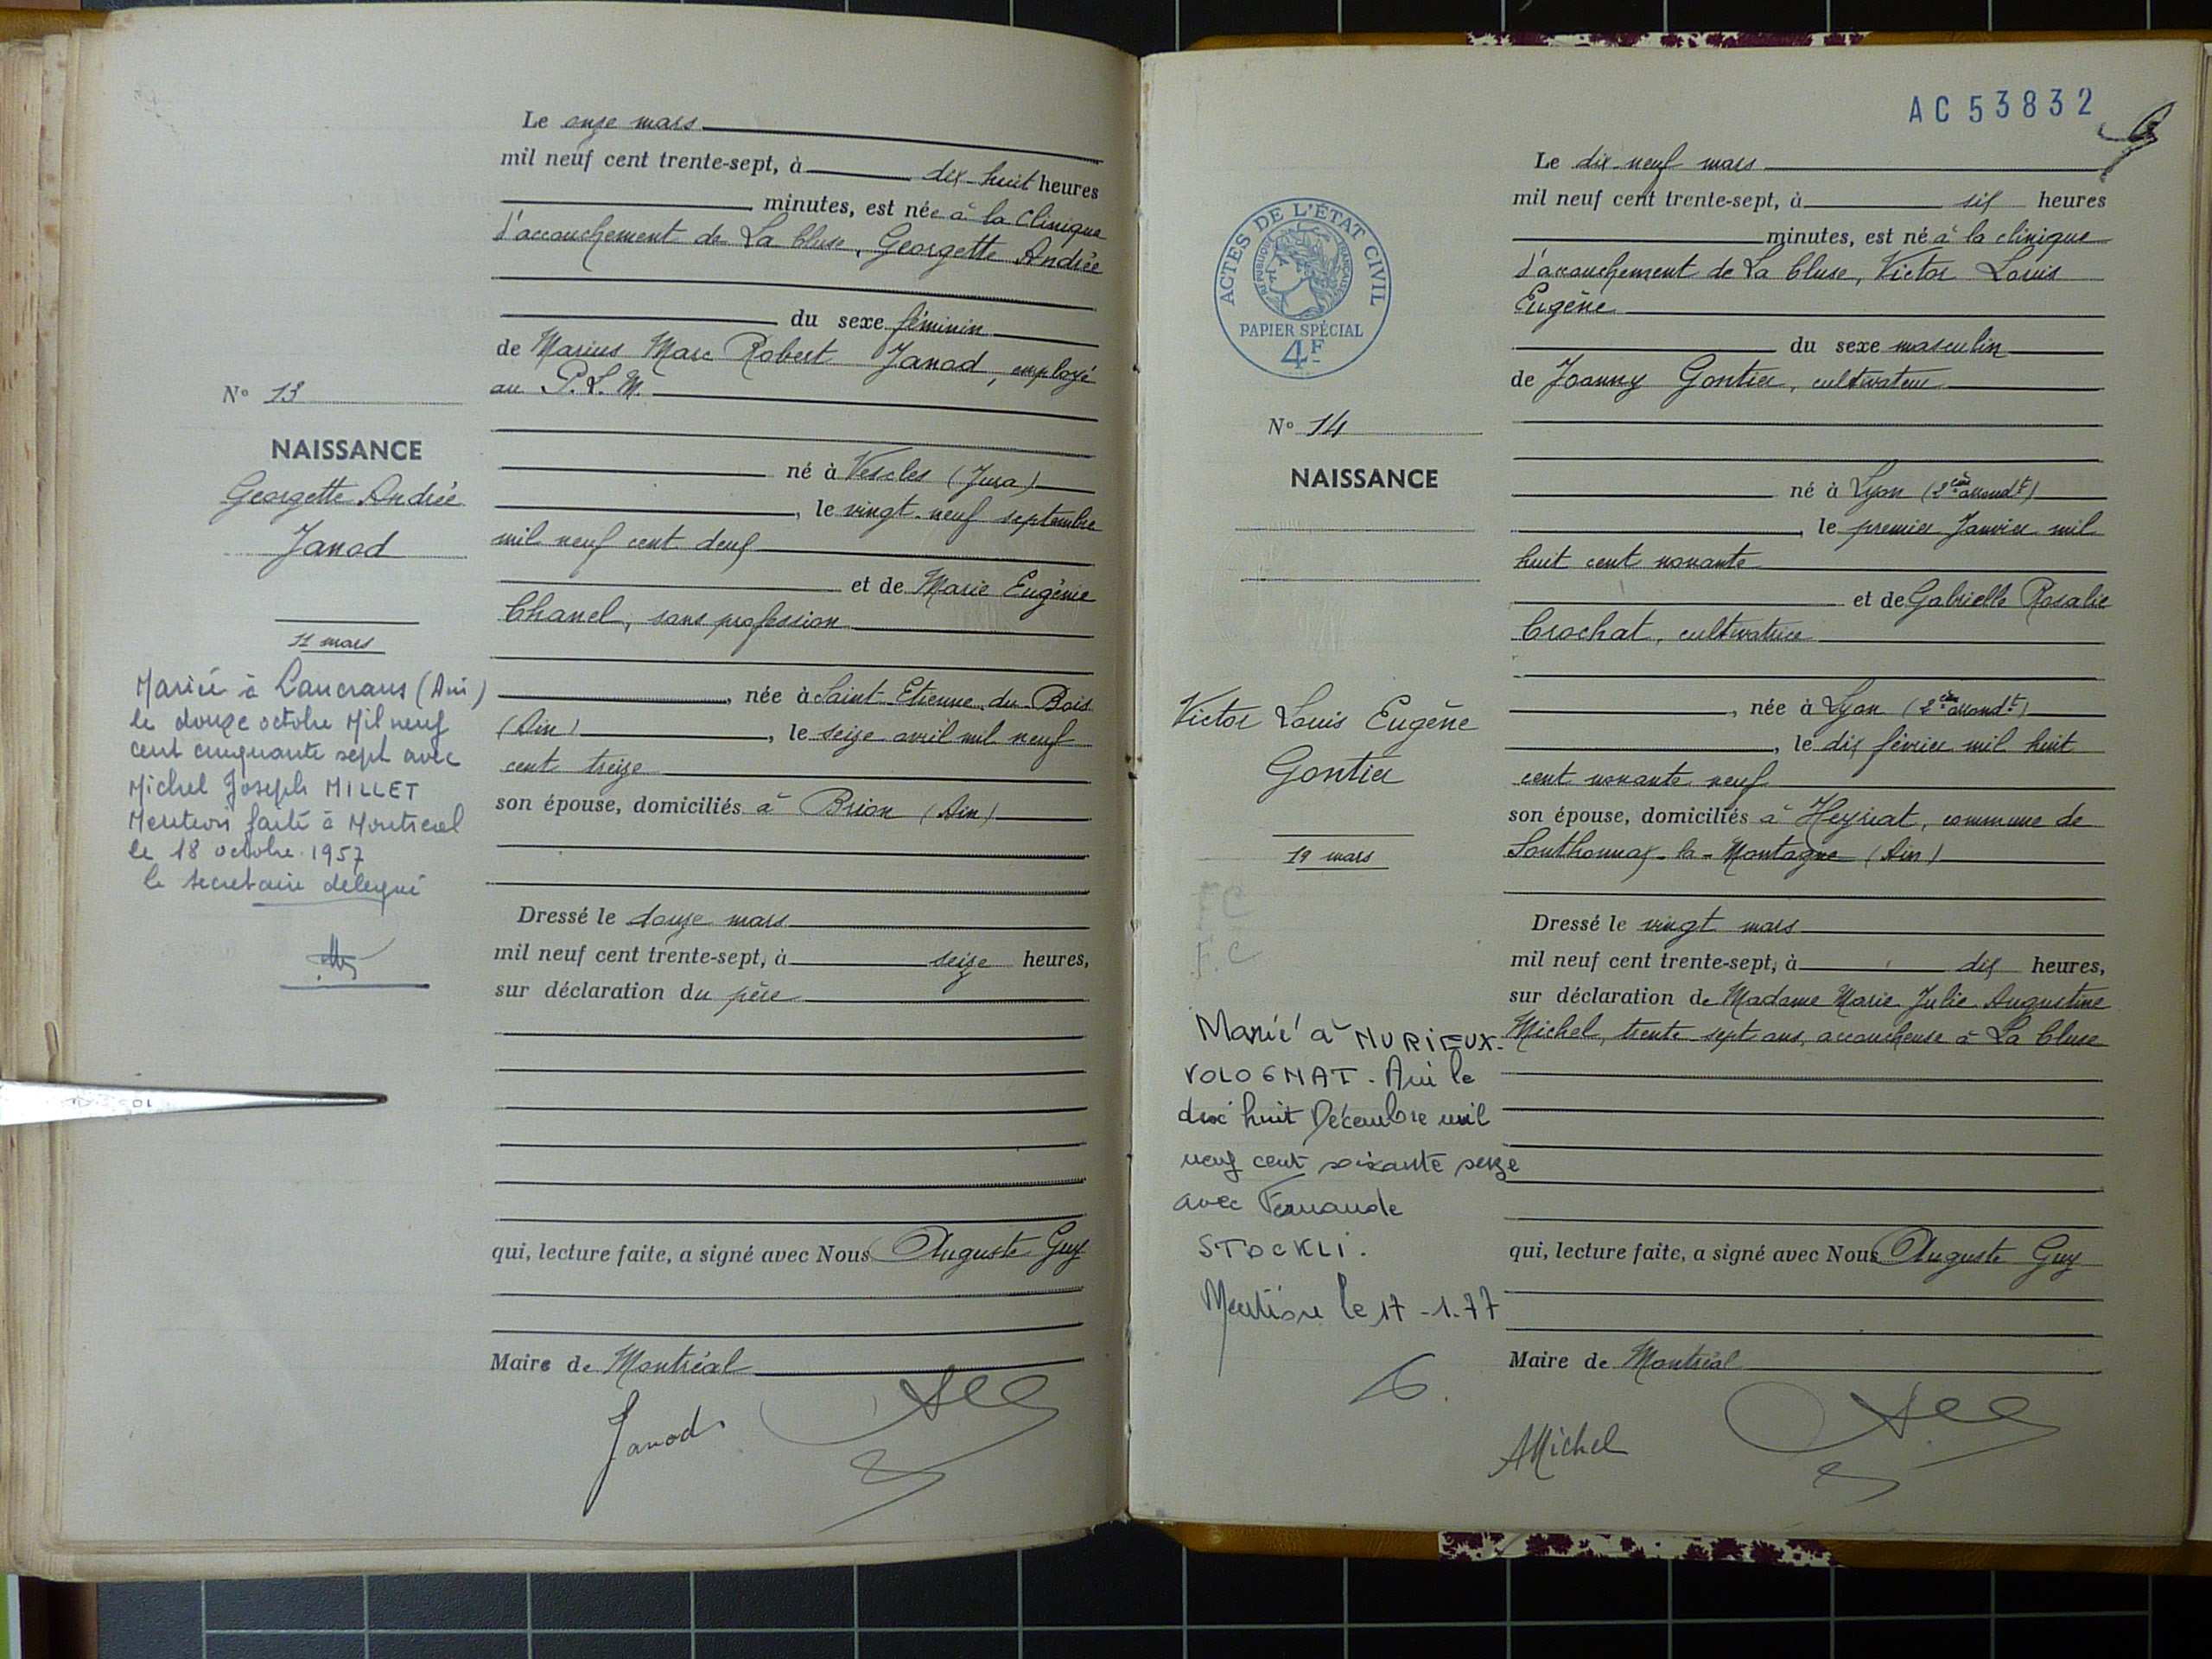 Le onze mars
mil neuf cent trente-sept, à dix-huit heures
minutes, est née à la clinique
d'accouchement de La Cluse, Georgette Andrée
du sexe féminin
de Marius Marc Robert Janod, employé
au P.L.M.
né à Vescles (Jura)
, le vingt-neuf septembre
mil neuf cent deux
et de Marie Eugénie
Chanel, sans profession
, née à Saint-Etienne-du-Bois
(Ain), le seize avril mil neuf
cent treize
son épouse, domiciliés à Brion (Ain)
Dressé le douze mars
mil neuf cent trente-sept, à seize heures,
sur déclaration du père
qui, lecture faite, a signé avec Nous Auguste Guy
Maire de Montréal
Janod
N° 13
NAISSANCE
Georgette Andrée
Janod
11 mars
Mariée à Lancrans (Ain)
le douze octobre Mil neuf
cent cinquante sept avec
Michel Joseph MILLET
Mention faite à Montreal
le 18 octobre 1957
le secretaire delegué
AC53832
Le dix-neuf mars
mil neuf cent trente-sept, à six heures
minutes, est né à la clinique
d'accouchement de La Cluse, Victor Louis
Eugène
du sexe masculin
de Joanny Gontier, cultivateur
né à Lyon (2ème arrondt)
, le premier Janvier mil
huit cent nonante
et de Gabrielle Rosalie
Crochat, cultivatrice
, née à Lyon (2ème arrondt)
, le dix février mil huit
cent nonante neuf
son épouse, domiciliés à Heyriat, commune de
Sonthonnax-la-Montagne (Ain)
Dressé le vingt mars
mil neuf cent trente-sept, à dix heures,
sur déclaration de Madame Marie Julie Augustine
Michel, trente-sept ans, accoucheuse à La Cluse
qui, lecture faite, a signé avec Nous Auguste Guy
Maire de Montréal
AMichel
ACTES DE L'ÉTAT CIVIL
RÉPUBLIQUE FRANÇAISE
PAPIER SPÉCIAL
4F
N° 14
NAISSANCE
Victor Louis Eugène
Gontier
19 mars
FC
F.C
Marié à NURIEUX-
VOLOGNAT. Ain le
dix huit Décembre mil
neuf cent soixante seize
avec Fernande
STOCKLI.
Mention le 17-1-77